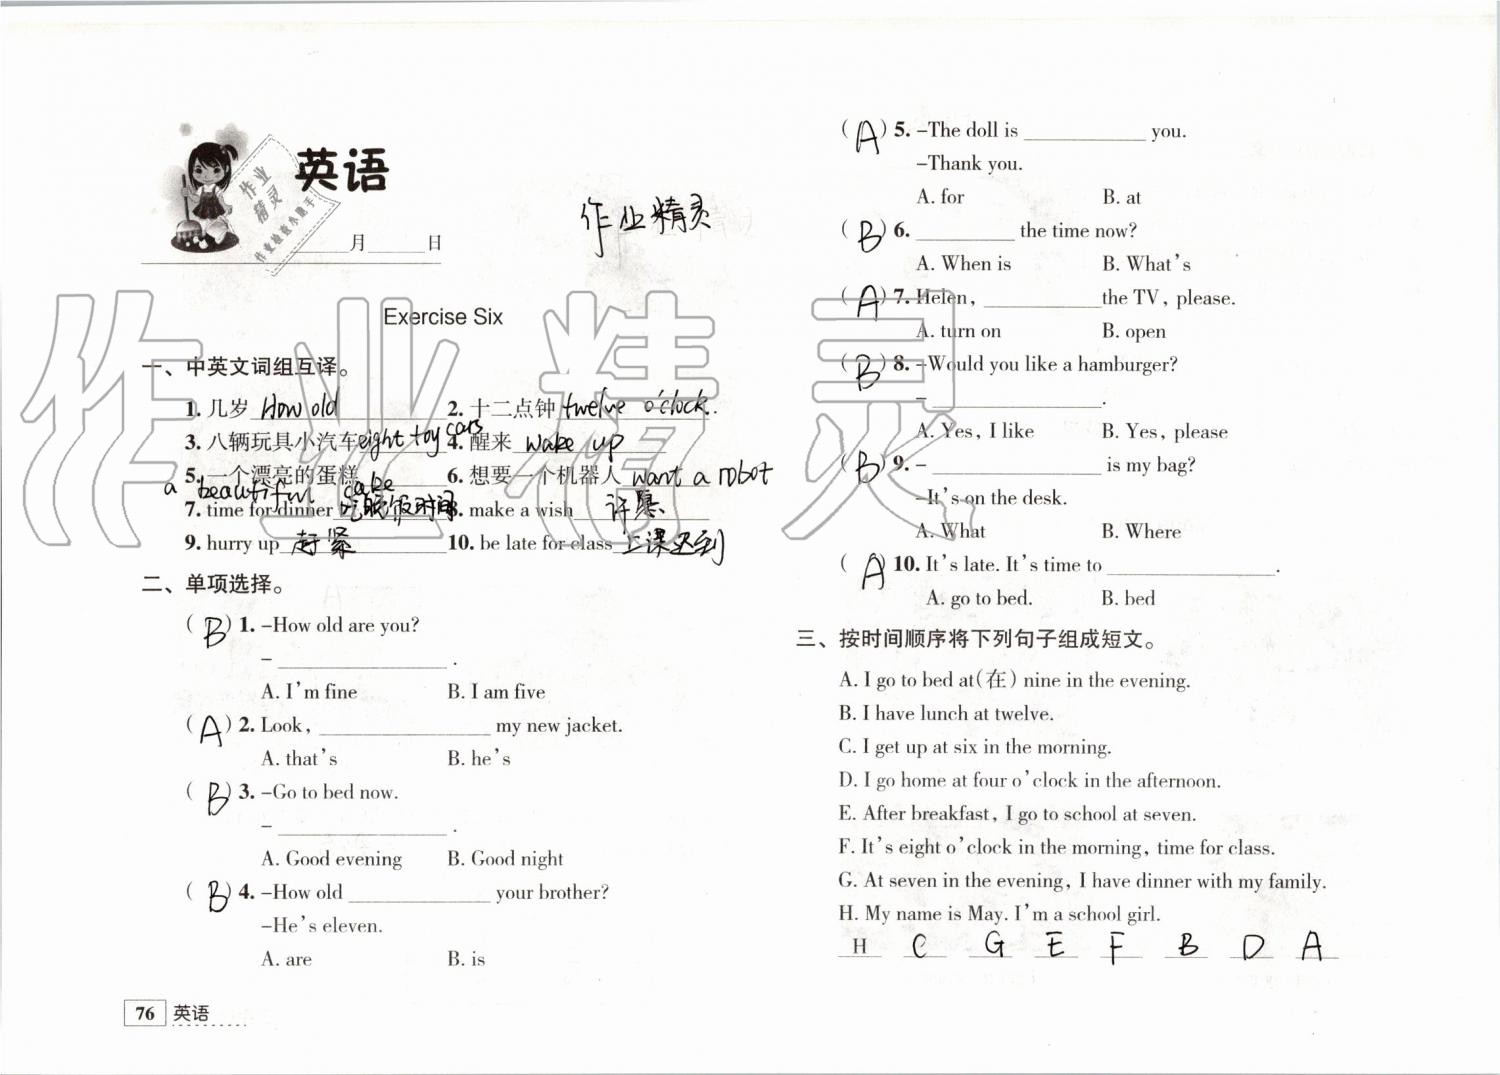 英语
作业精灵
作业
精灵
作业检查小能手
月 日
Exercise Six
一、中英文词组互译。
1. 几岁 How old 2. 十二点钟 twelve o'clock.
3. 八辆玩具小汽车 eight toy cars 4. 醒来 wake up
5. 一个漂亮的蛋糕 a beautiful cake 6. 想要一个机器人 want a robot
7. time for dinner 吃晚饭时间 8. make a wish 许愿
9. hurry up 赶紧 10. be late for class 上课迟到
二、单项选择。
( B ) 1. -How old are you?
- ______ .
A. I'm fine B. I am five
( A ) 2. Look, ______ my new jacket.
A. that's B. he's
( B ) 3. -Go to bed now.
- ______ .
A. Good evening B. Good night
( B ) 4. -How old ______ your brother?
-He's eleven.
A. are B. is
76 英语
( A ) 5. -The doll is ______ you.
-Thank you.
A. for B. at
( B ) 6. ______ the time now?
A. When is B. What's
( A ) 7. Helen, ______ the TV, please.
A. turn on B. open
( B ) 8. -Would you like a hamburger?
- ______ .
A. Yes, I like B. Yes, please
( B ) 9. - ______ is my bag?
-It's on the desk.
A. What B. Where
( A ) 10. It's late. It's time to ______ .
A. go to bed. B. bed
三、按时间顺序将下列句子组成短文。
A. I go to bed at(在) nine in the evening.
B. I have lunch at twelve.
C. I get up at six in the morning.
D. I go home at four o'clock in the afternoon.
E. After breakfast, I go to school at seven.
F. It's eight o'clock in the morning, time for class.
G. At seven in the evening, I have dinner with my family.
H. My name is May. I'm a school girl.
H C G E F B D A
作业精灵